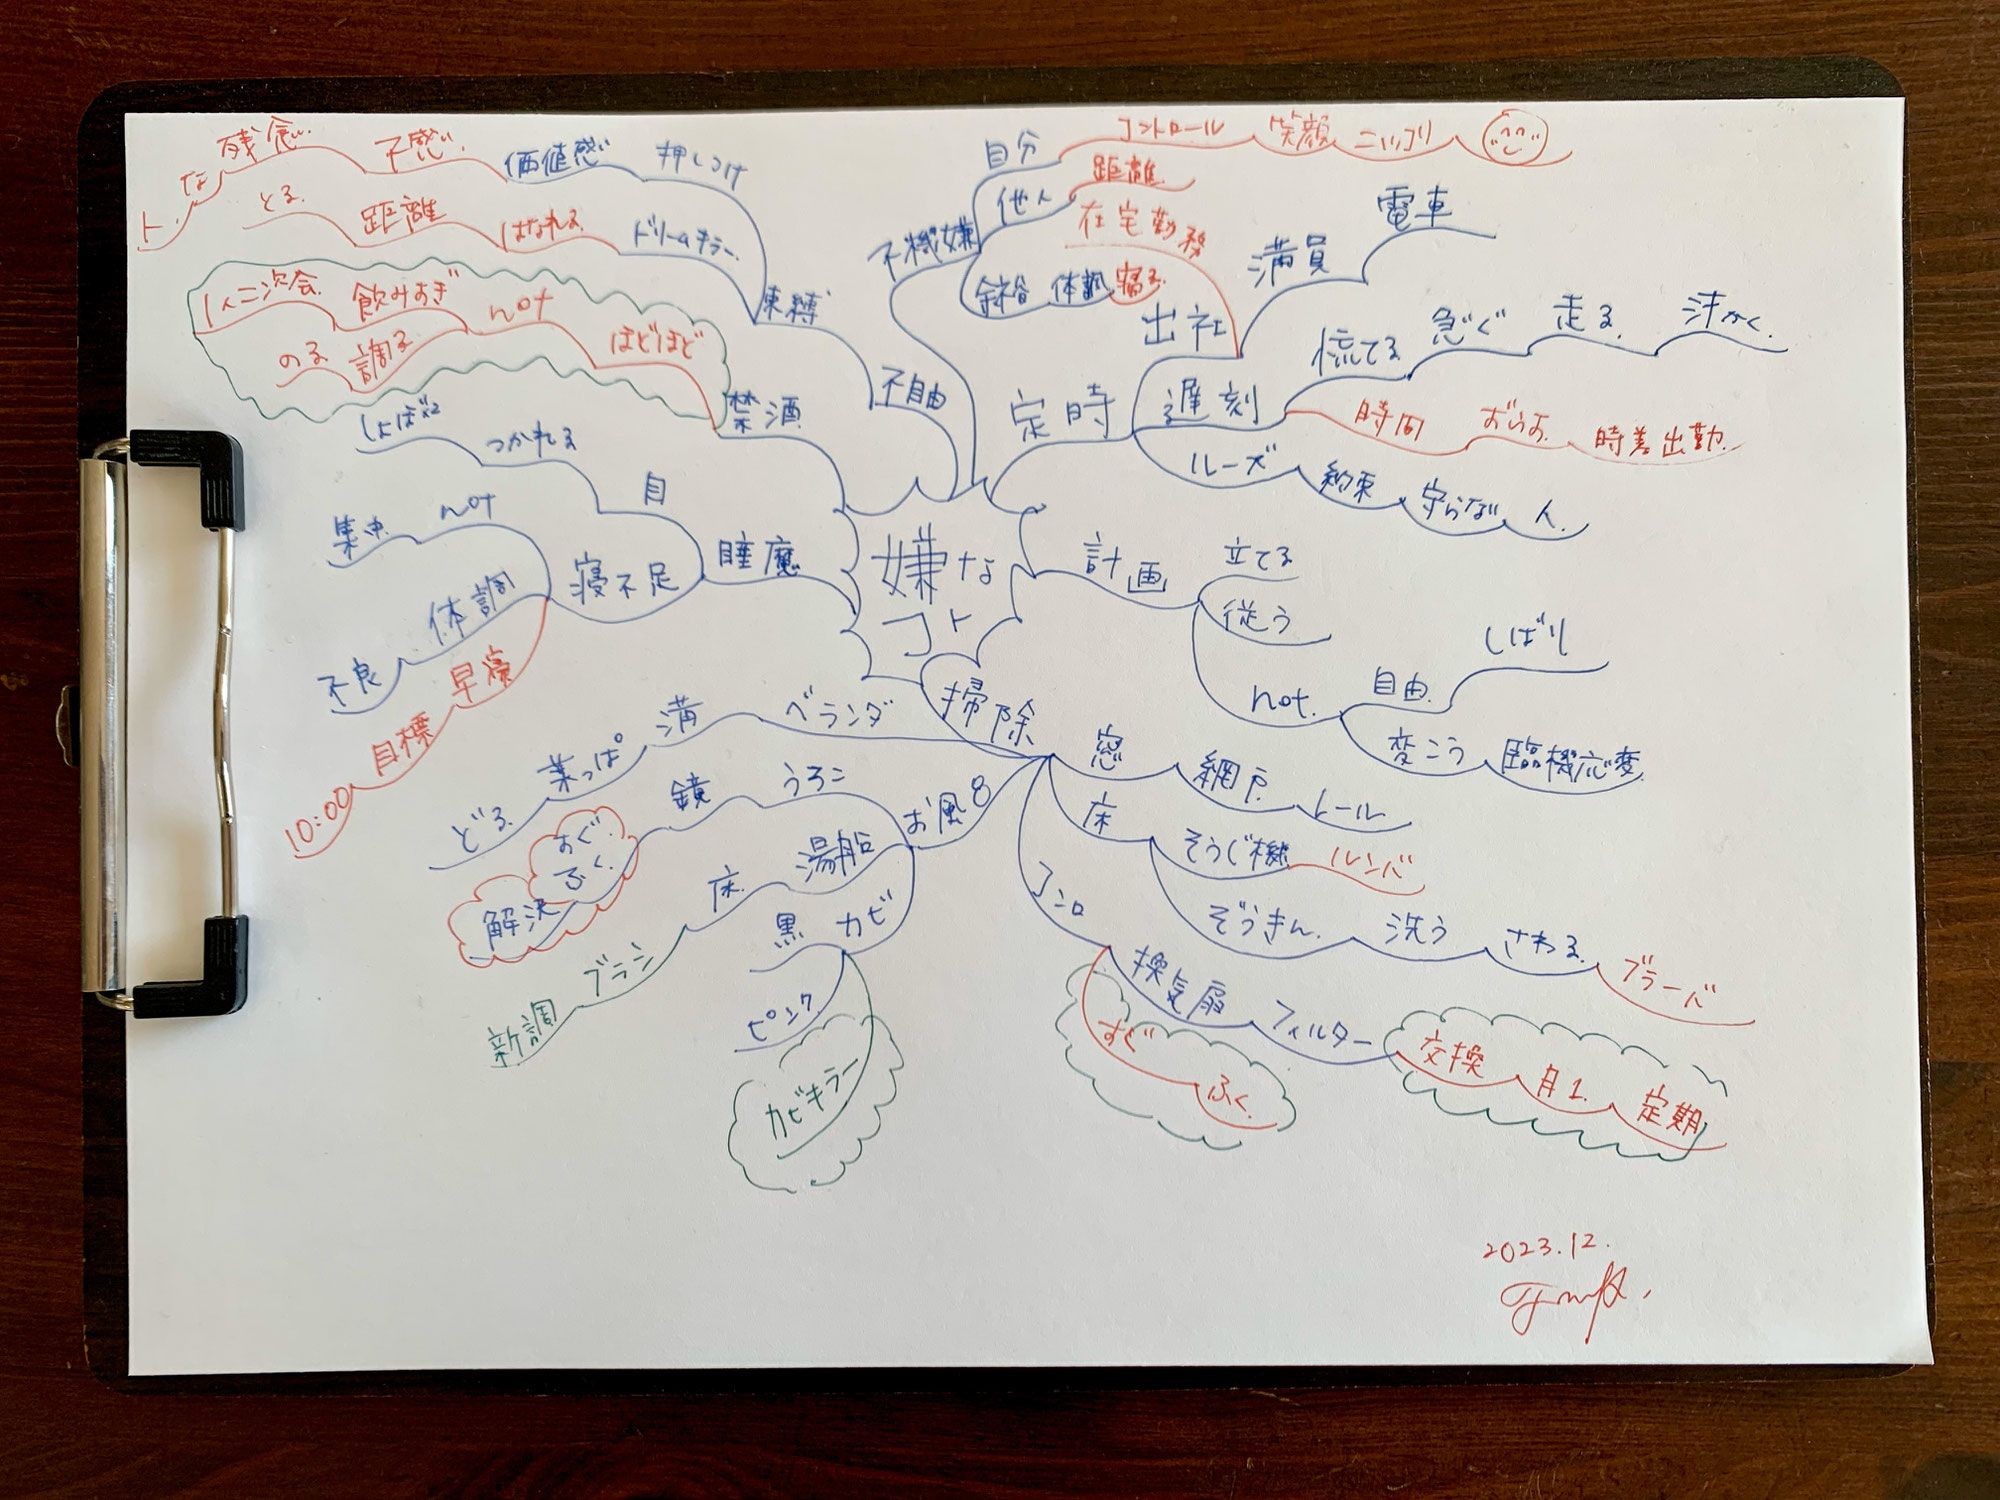 嫌な
コト
定時
出社
満員
電車
在宅勤務
遅刻
慌てる
急ぐ
走る
汗かく
時間
ずらす
時差出勤
ルーズ
約束
守らない
人
計画
立てる
従う
not
自由
しばり
変こう
臨機応変
掃除
窓
網戸
レール
床
そうじ機
ルンバ
ぞうきん
洗う
さわる
ブラーバ
コンロ
換気扇
フィルター
交換
月1
定期
すぐ
ふく
お風呂
うろこ
鏡
すぐ
ふく
解決
湯船
床
ブラシ
新調
カビ
黒
ピンク
カビキラー
ベランダ
溝
葉っぱ
どろ
睡魔
寝不足
目
つかれる
しょぼ×2
not
集中
体調
不良
早寝
目標
10:00
禁酒
ほどほど
not
飲みすぎ
1人二次会
調る
のる
不自由
束縛
押しつけ
価値感
不感
残念
な
ト
ドリームキラー
はなれる
距離
とる
不機嫌
自分
コントロール
笑顔
ニッコリ
他人
距離
余裕
体調
寝る
2023.12.